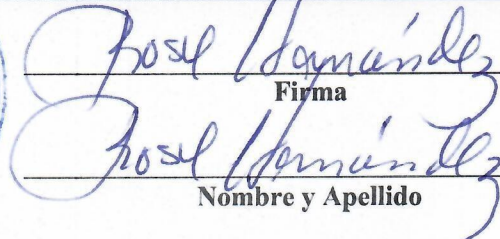 Rosy Hernández
Firma
Rosy Hernández
Nombre y Apellido